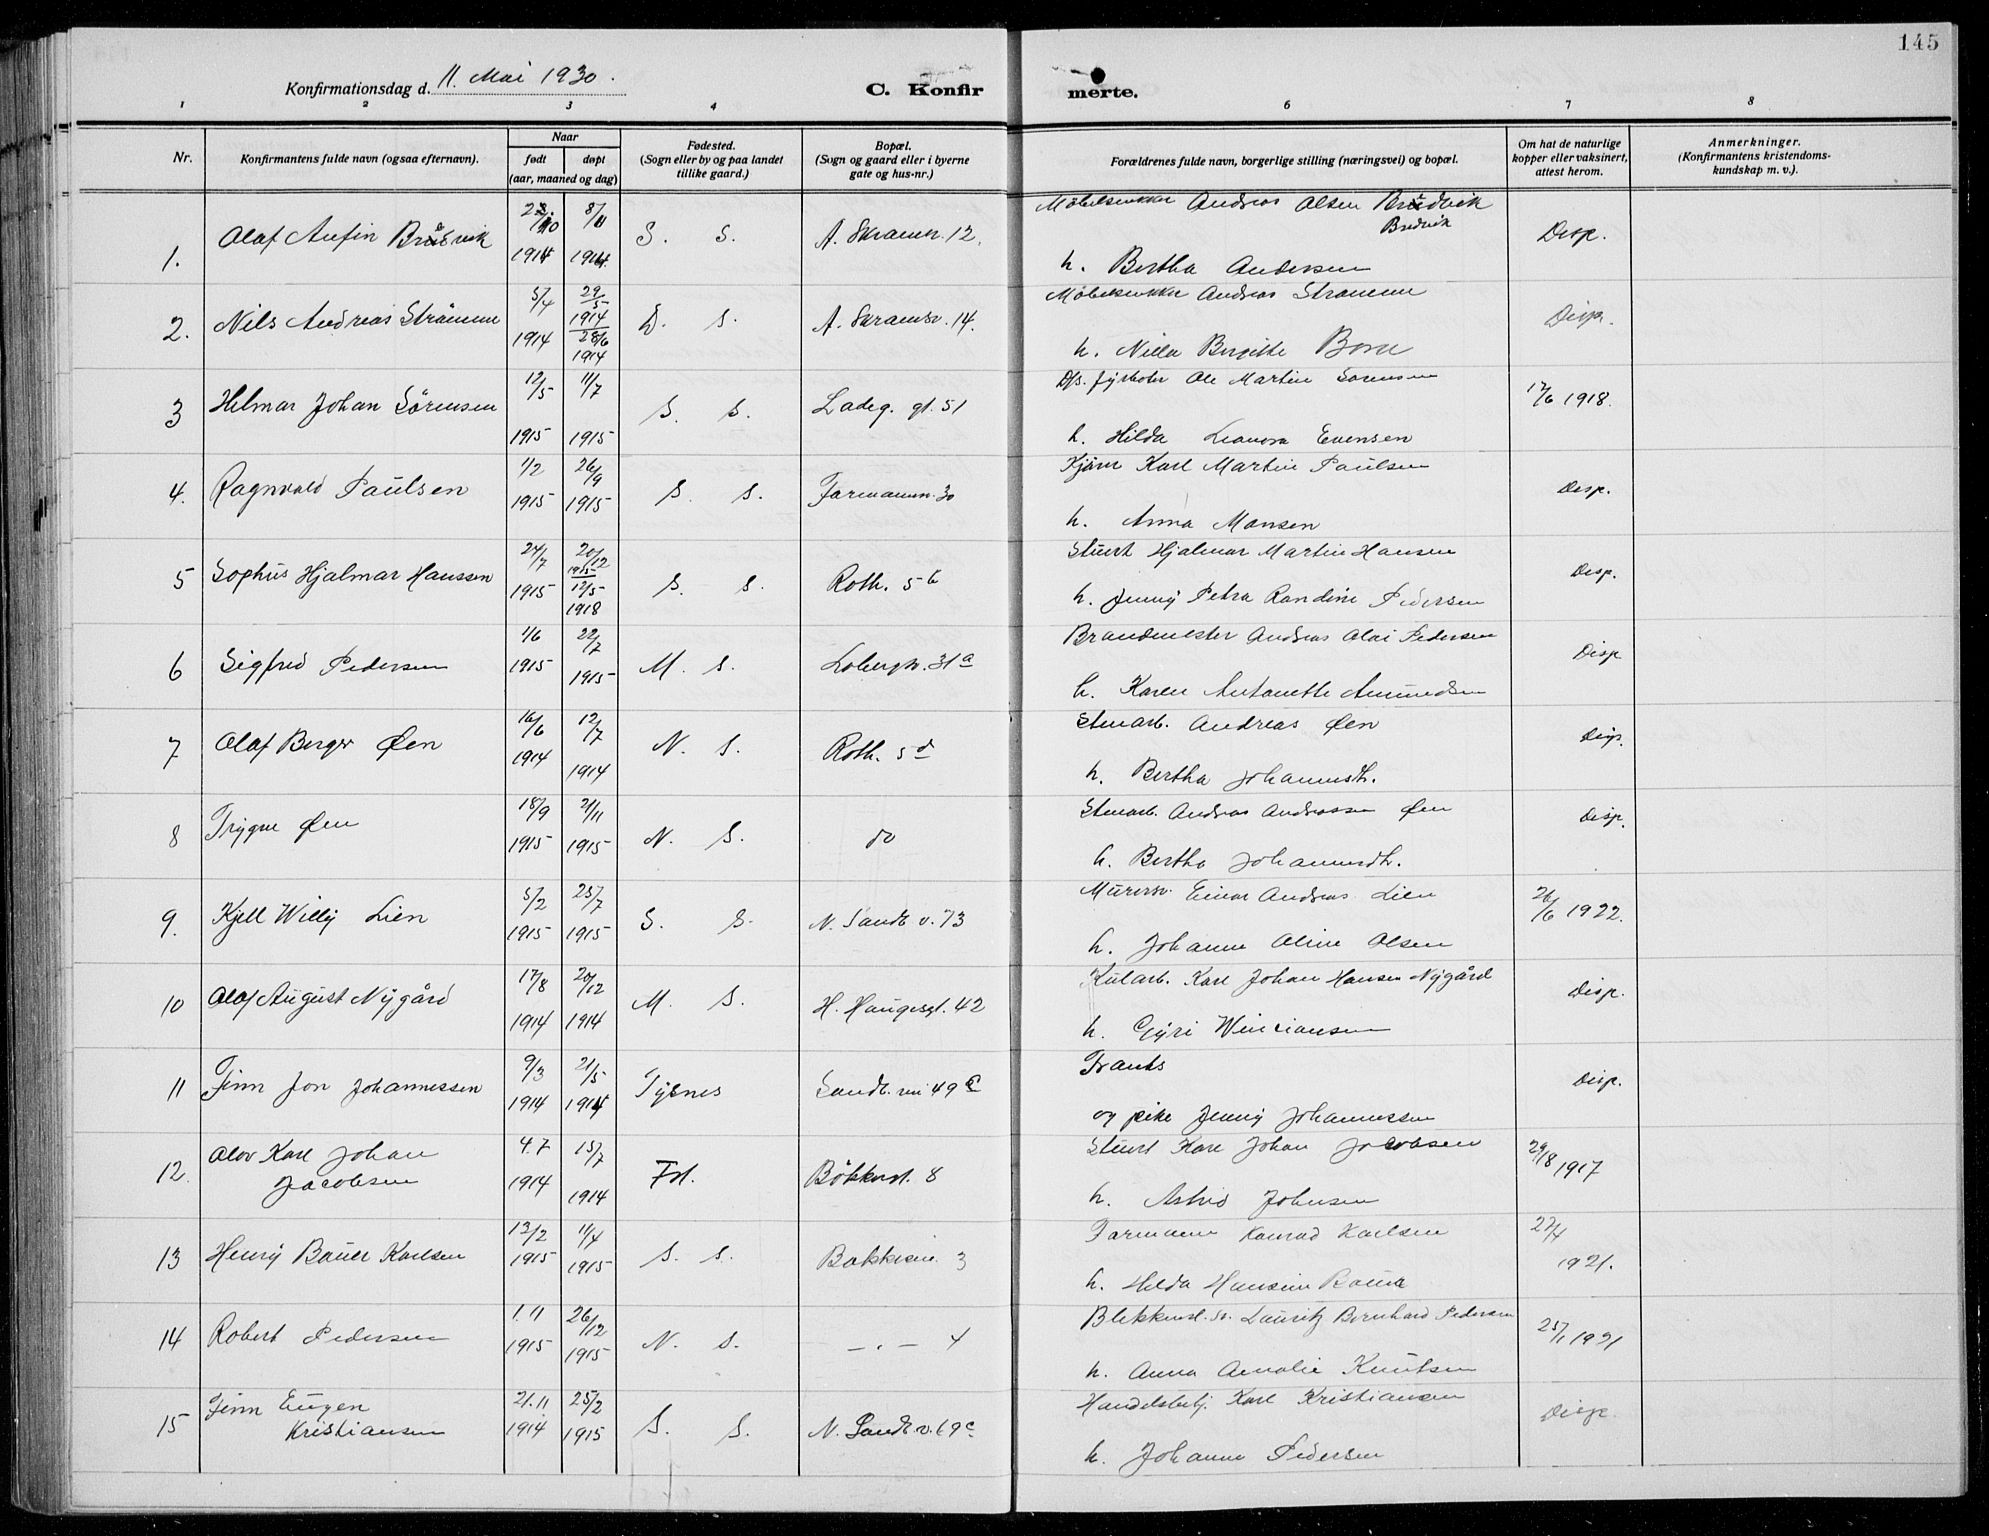 145
Konfirmationsdag d. 11. Mai 1930.
C. Konfirmerte.
1 2 3 4 6 7 8
Nr.
Konfirmantens fulde navn (ogsaa efternavn).
Naar
født døpt
(aar, maaned og dag)
Fødested.
(Sogn eller by og paa landet
tillike gaard.)
Bopæl.
(Sogn og gaard eller i byerne
gate og hus-nr.)
Forældrenes fulde navn, borgerlige stilling (næringsvei) og bopæl.
Om hat de naturlige
kopper eller vaksinert,
attest herom.
Anmerkninger.
(Konfirmantens kristendoms-
kundskap m. v.).
Andreas Olsen
Bredvik
1. Olaf Anfin 1914 8/11 1914 S. S. 12. Disp.
h. Bertha Andersen
Andreas Strømme
2. Nils Andreas Strömme 5/4 1914 29/5 1914 28/6 1914 D. S. 14. Disp.
h. Nilla Bergitte
Ole Martin Sørensen
3 Hilmar Johan Sörensen 12/5 1915 11/7 1915 S. S. Ladeg. gt. 51 17/6 1918.
h. Hilda Leonora Evensen
Karl Martin Paulsen
4. Ragnvald Paulsen 1/2 1915 26/9 1915 S. S. Farmannsv. 30 Disp.
h. Anna Monsen
Stuert Hjalmar Martin Hansen
5 Sophus Hjalmar Hanssen 24/7 1915 20/12 1915 12/5 1918 S. S. Roth. 5 b Disp.
h. Jenny Petra Randine Pedersen
Brandmester Andreas Olai Pedersen
6 Sigfred Pedersen 1/6 1915 22/7 1915 M. S. 31 a Disp
h. Karen Antonette Amundsen
Stenarb. Andreas Øen
7 Olaf Berger Øen 16/6 1914 12/7 1914 N. S. Roth. 5 d Disp.
h. Bertha Johannesdt.
Stenarb. Andreas Andreassen Øen
8 Trygve Øen 18/9 1915 21/11 1915 N. S. do Disp.
h. Bertha Johannesdt.
Murersv. Einar Andreas Lien
9. Kjell Willy Lien 5/2 1915 25/7 1915 S. S. N. Sandv. v. 73 26/6 1922.
h. Johanne Oline Olsen
Kularb. Karl Johan Hansen Nygård
10 Olaf August Nygård 17/8 1914 20/12 1914 M. S. H. Haugesgt. 42 Disp.
h. Gyri
Frants
11 Finn Jon Johannessen 9/3 1914 21/5 1914 Tysnes 49 Disp.
og pike Jenny Johannessen
Stuert Karl Johan Jacobsen
12. Olov Karl Johan
Jacobsen 4.7 1914 15/7 1914 8 29/8 1917
h. Astrid Johnsen
Formann Konrad Karlsen
13 Henry Bauer Karlsen 13/2 1915 11/4 1915 S. S. 3 27/4 1921.
h. Hilda
Lauritz Bernhard Pedersen
14 Robert Pedersen 1.11 1915 26/12 1915 N. S. — „ — 4 25/1 1921
h. Anna Amalie Knutsen
Handelsbetj. Karl Kristiansen
15 Finn Eugen
Kristiansen 21.11 1914 25/2 1915 S. S. N. Sandv. v. 69 c Disp.
h. Johanne Pedersen